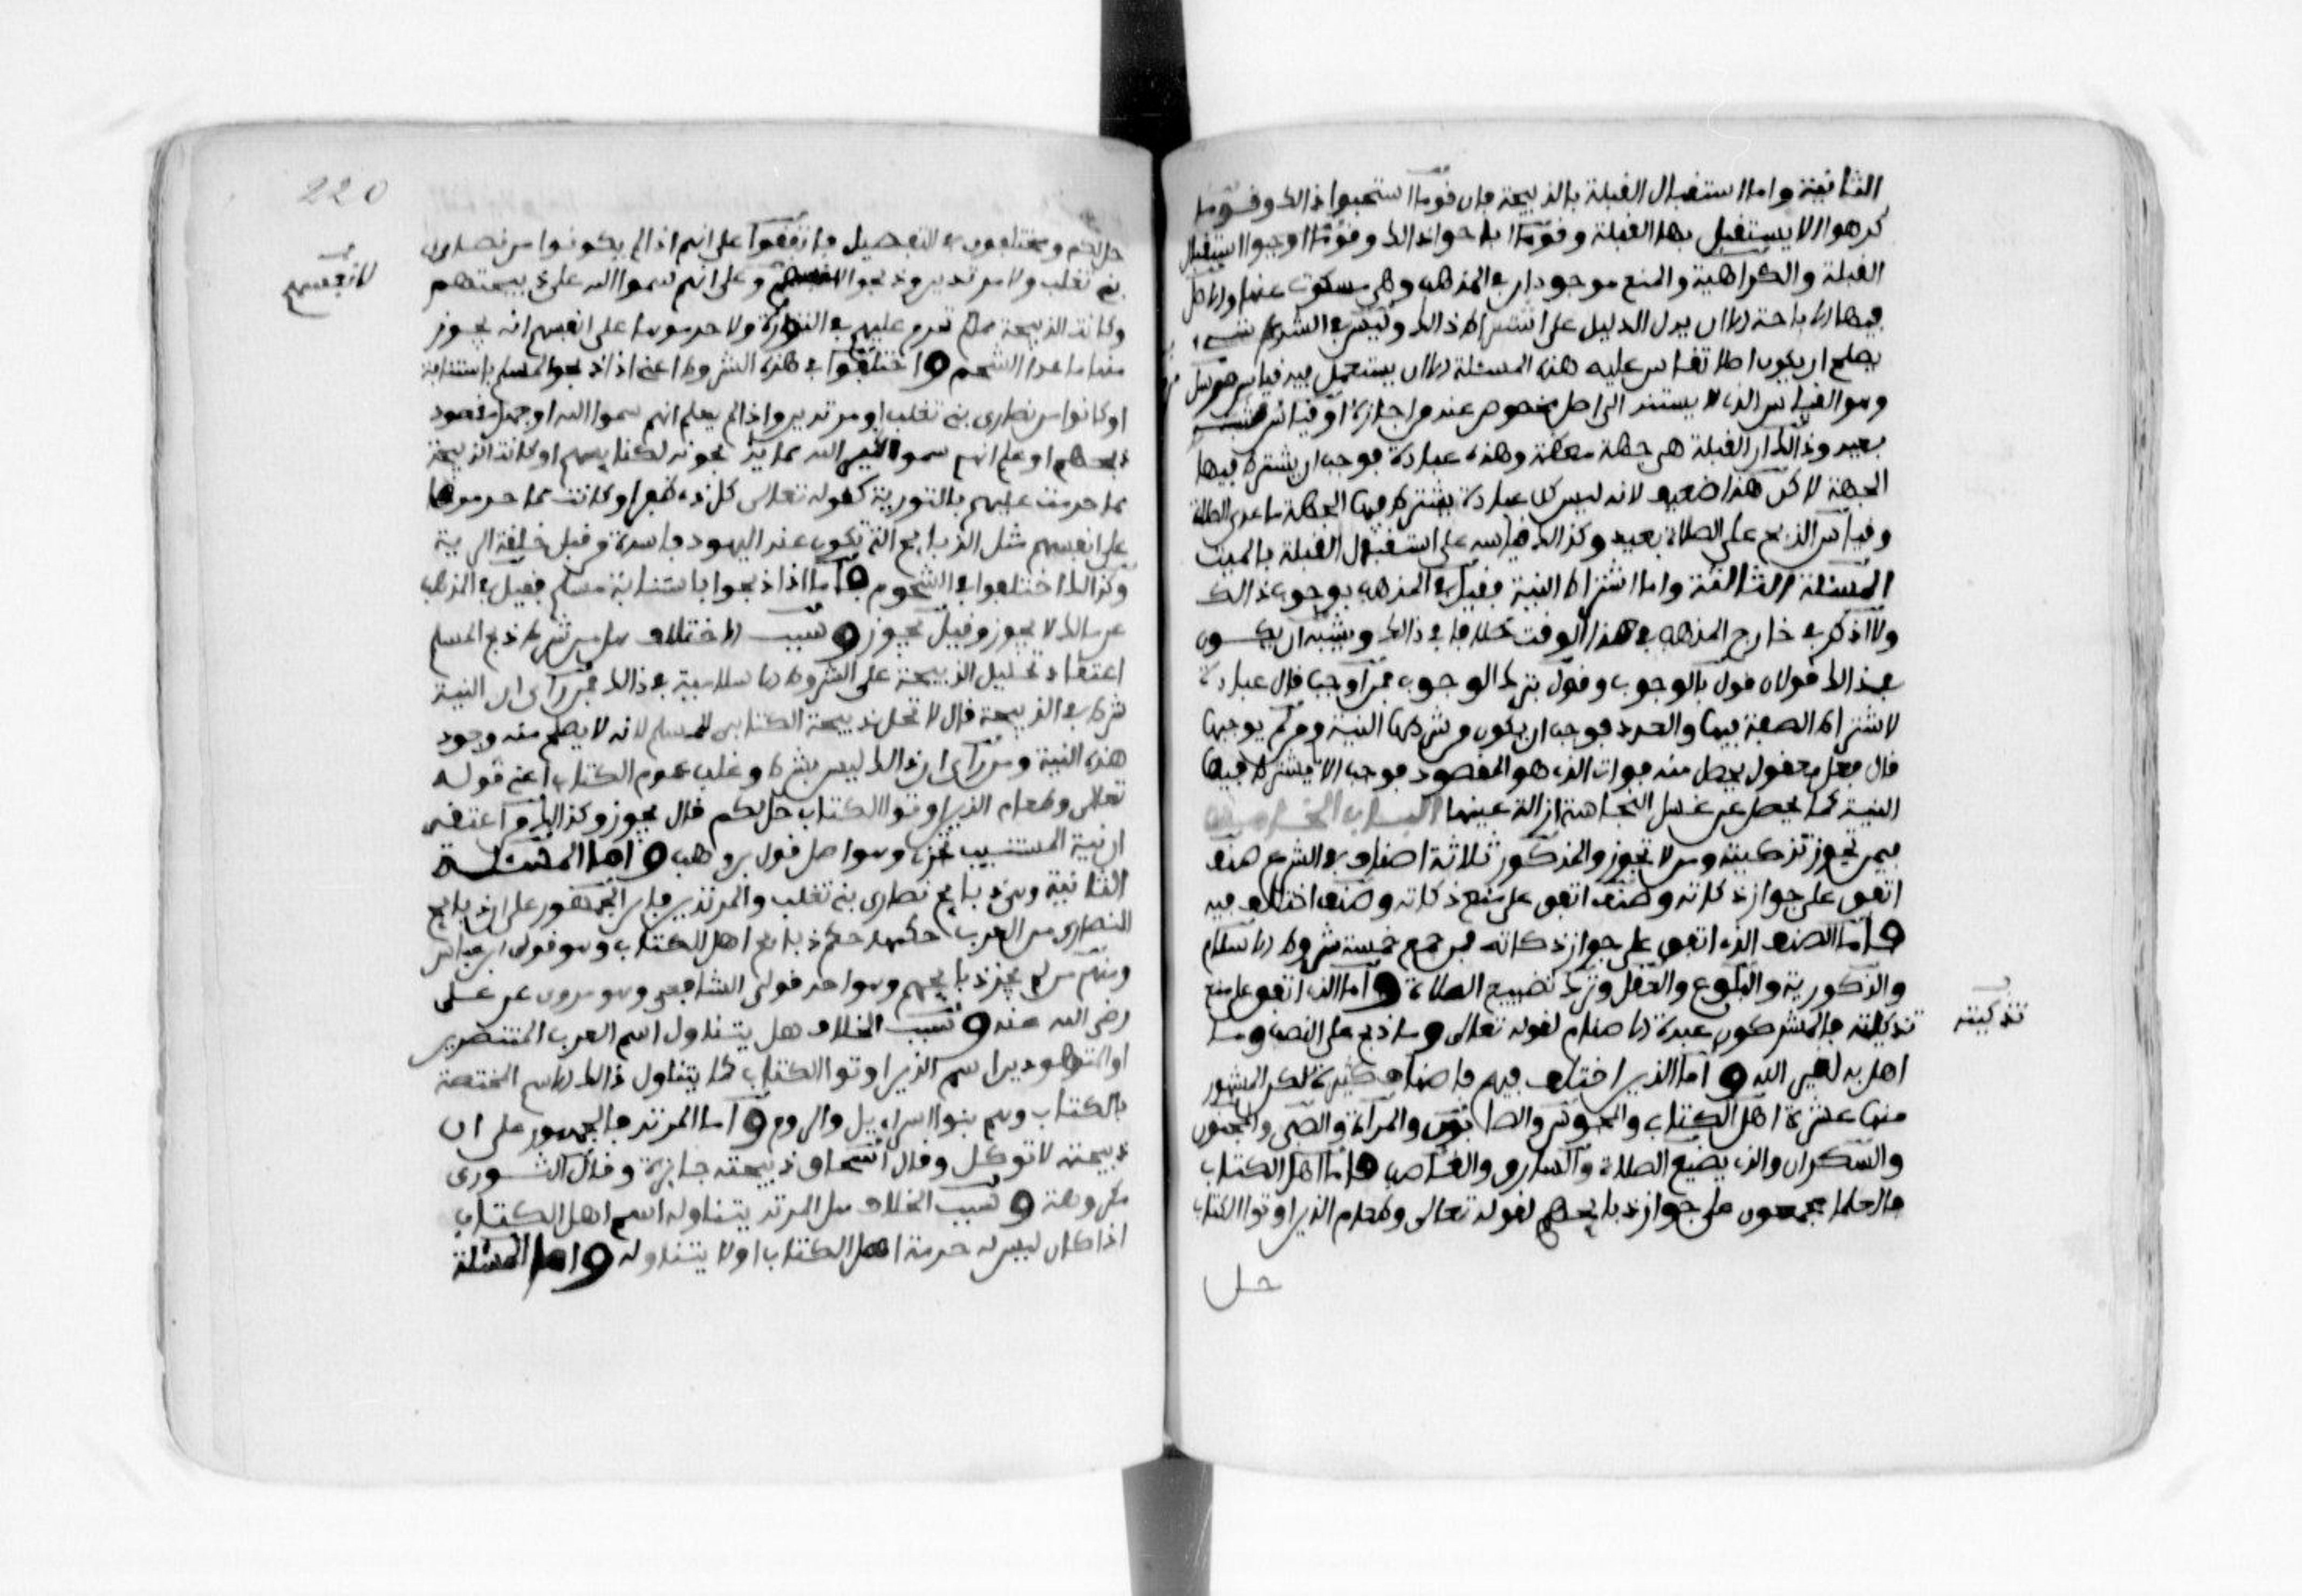 الثانية واما استقبال القبلة بالذبيحة فان قوما استحبوا ذالك وقوما
كرهوا الا يستقبل بها القبلة وقوما اباحوا ذالك وقوما اوجبوا استقبال
القبلة والكراهية والمنع موجودان في المذهب وهي مسكوت عنها والاصل
فيها الاباحة الا ان يدل الدليل على اشتراط ذالك وليس في الشرع شيء
يصلح ان يكون اصلا تقاس عليه هذه المسئلة الا ان يستعمل فيه قياس مرسل
وهو القياس الذي لا يستند الى اصل مخصوص عند من اجازه او قياس شبه
بعيد وذالك ان القبلة هي جهة معظمة وهذه عبادة فوجب ان يشترط فيها
الجهة لاكن هذا ضعيف لانه ليس كل عبادة يشترط فيها الجهة ما عدى الصلاة
وقياس الذبح على الصلاة بعيد وكذالك قياسه على استقبال القبلة بالميت
المسئلة الثالثة واما اشتراط النية فقيل في المذهب بوجوب ذالك
ولا اذكر في خارج المذهب في هذا الوقت خلافا في ذالك ويشبه ان يكون
في ذالك قولان قول بالوجوب وقول بترك الوجوب فمن اوجب قال عبادة
لاشتراط الصفة فيها والعدد فوجب ان يكون من شرطها النية ومن لم يوجبها
قال فعل معقول يحصل عنه فوات الذي هو المقصود فوجب الا يشترط فيها
النية كما يحصل عن غسل النجاسة ازالة عينها الباب الخامس
فيمن تجوز تذكيته ومن لا تجوز والمذكور ثلاثة اصناف في الشرع صنف
اتفق على جواز ذكاته وصنف اتفق على منع ذكاته وصنف اختلف فيه
فاما الصنف الذي اتفق على جواز ذكاته فمن جمع خمسة شروط الاسلام
والذكورية والبلوغ والعقل وترك تضييع الصلاة واما الذي اتفق على منع
تذكاته فالمشركون عبدة الاصنام لقوله تعالى وما ذبح على النصب وما
تذكيته
اهل به لغير الله واما الذين اختلف فيهم فاصناف كثيرة لكن المشهور
منها عشرة اهل الكتاب والمجوس والصابئون والمرأة والصبي والمجنون
والسكران والذي يضيع الصلاة والسارق والغاصب فاما اهل الكتاب
فالعلما مجمعون على جواز ذبايحهم لقوله تعالى وطعام الذين اوتوا الكتاب
حل
220
حل لكم ومختلفون في التفصيل فاتفقوا على انهم اذا لم يكونوا من نصارى
بني تغلب ولا مرتدين وذبحوا لانفسهم وعلم انهم سموا الله على ذبيحتهم
لانفسهم
وكانت الذبيحة مما لم تحرم عليهم في التوراة ولا حرموها على انفسهم انه يجوز
منها ما عدا الشحم واختلفوا في هذه الشروط اعني اذا ذبحوا لمسلم باستنابة
او كانوا من نصارى بني تغلب او مرتدين واذا لم يعلم انهم سموا الله او جهل مقصود
ذبحهم او علم انهم سموا لغير الله مما يذبحونه لكنايسهم او كانت الذبيحة
مما حرمت عليهم بالتورية كقوله تعالى كل ذي ظفر او كانت مما حرموها
على انفسهم مثل الذبايح التي تكون عند اليهود فاسدة من قبل خلقة الهية
وكذالك اختلفوا في الشحوم فاما اذا ذبحوا باستنابة مسلم فقيل في المذهب
عن مالك لا يجوز وقيل يجوز وسبب الاختلاف هل من شرط ذبح المسلم
اعتقاد تحليل الذبيحة على الشروط الاسلامية في ذالك فمن رآى ان النية
شرط في الذبيحة قال لا تحل ذبيحة الكتابي لمسلم لانه لا يصلح منه وجود
هذه النية ومن رآى ان ذالك ليس بشرط وغلب عموم الكتاب اعني قوله
تعالى وطعام الذين اوتوا الكتاب حل لكم قال يجوز وكذالك من اعتقد
ان نية المستنيب تجزي وهو اصل قول بن وهب واما المسئلة
الثانية وهي ذبايح نصارى بني تغلب والمرتدين فان الجمهور على ان ذبايح
النصارى من العرب حكمها حكم ذبايح اهل الكتاب وهو قول ابن عباس
ومنهم من لم يجز ذبايحهم وهو احد قولي الشافعي وهو مروي عن علي
رضي الله عنه وسبب الخلاف هل يتناول اسم العرب المتنصرين
او المتهودين اسم الذين اوتوا الكتاب كما يتناول ذالك الامم المختصة
بالكتاب وهم بنوا اسرائيل والروم واما المرتد فالجمهور على ان
ذبيحته لا توكل وقال اسحاق ذبيحته جايزة وقال الثوري
مكروهة وسبب الخلاف هل المرتد يتناوله اسم اهل الكتاب
اذا كان ليس له حرمة اهل الكتاب او لا يتناوله واما المسئلة